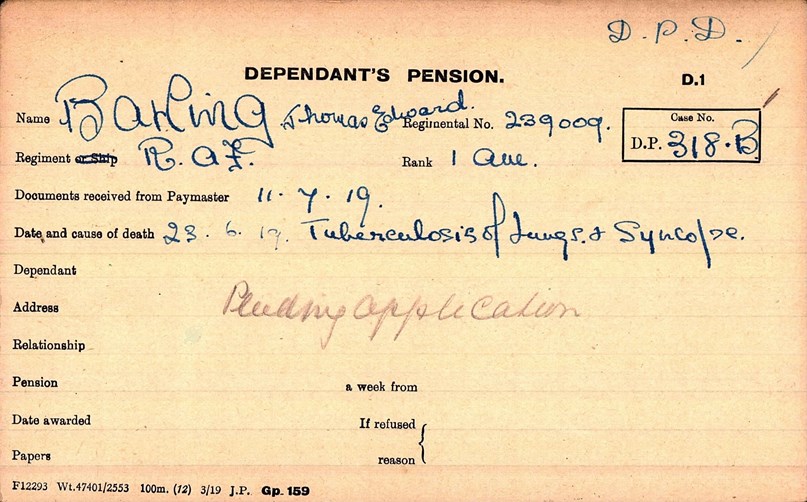 D.P.D.
DEPENDANT'S PENSION.
D.1
Name Barling Thomas Edward. Regimental No. 239009.
Case No.
D.P. 318.B
Regiment or Ship R.A.F. Rank 1 AM.
Documents received from Paymaster 11.7.19.
Date and cause of death 23.6.19. Tuberculosis of Lungs. & Syncope.
Dependant
Address Pending application
Relationship
Pension a week from
Date awarded If refused
Papers reason
F12293 Wt.47401/2553 100m. (12) 3/19 J.P. Gp. 159